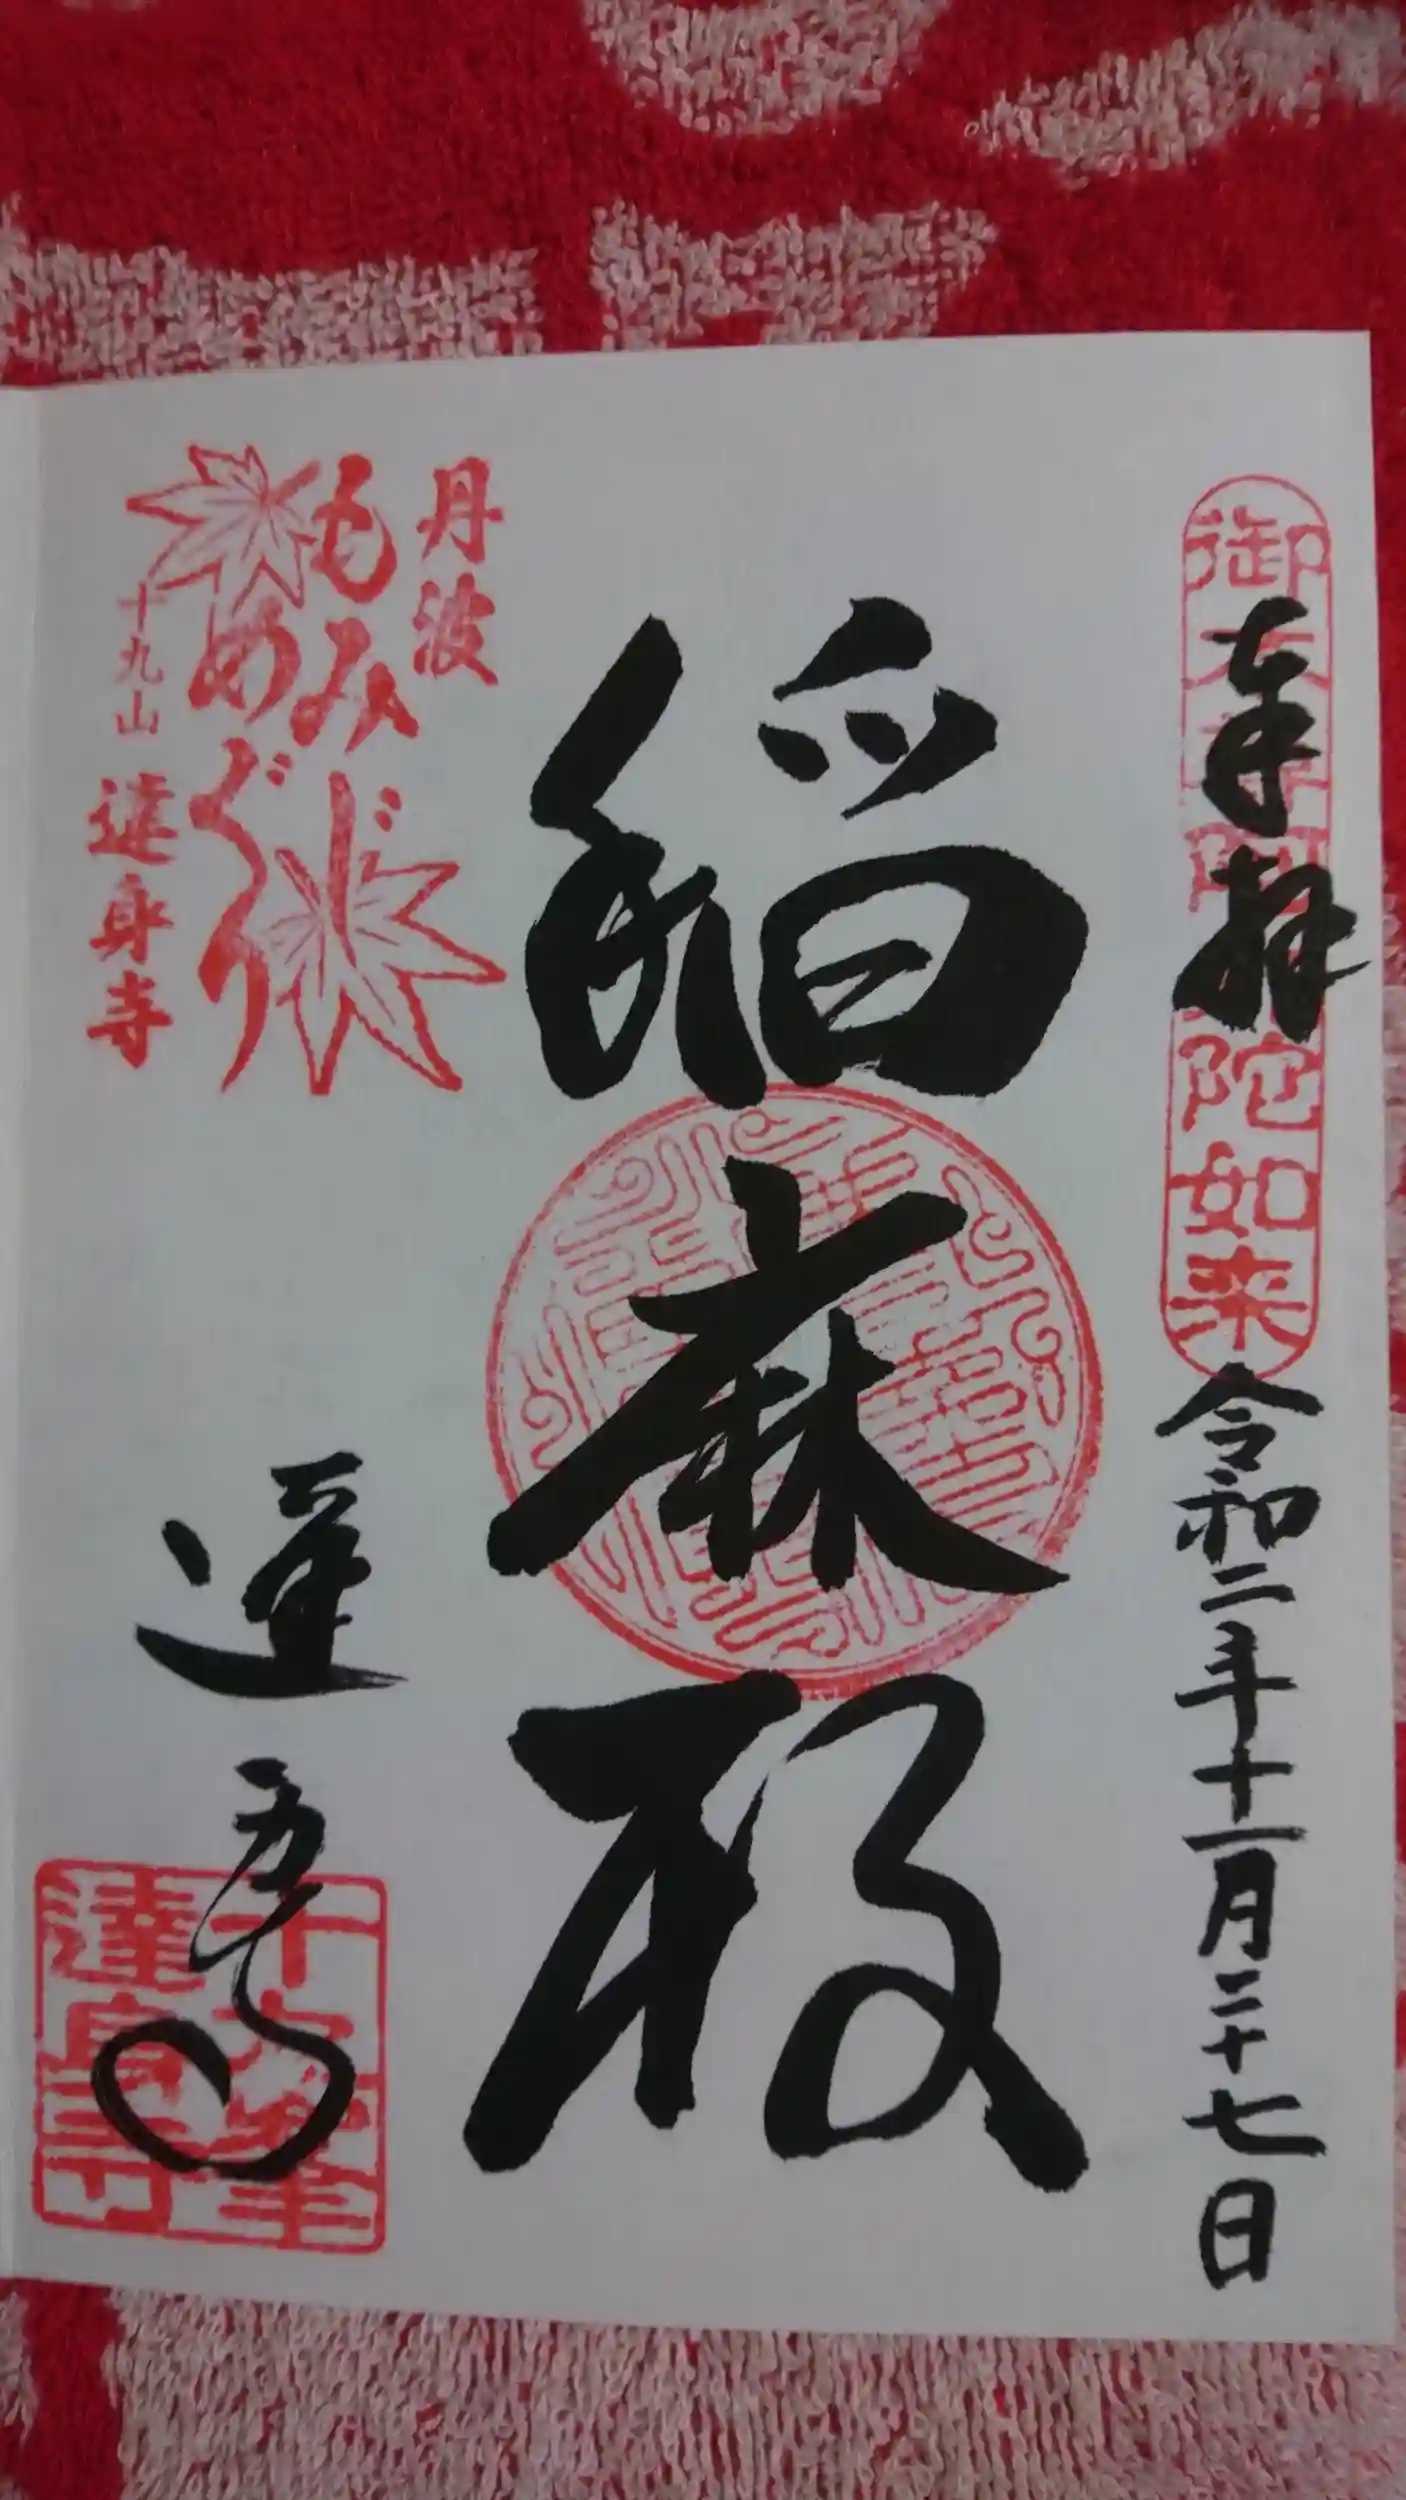 御本尊阿弥陀如来
奉拝
令和二年十一月二十七日
稲麻殿
丹波
もみじ
めぐり
十九山 達身寺
達身寺
達身寺